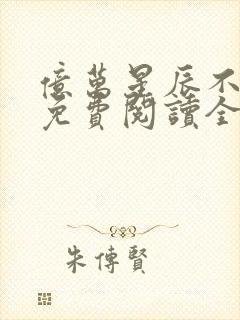 億萬星辰不
免費閱讀全
朱傳賢